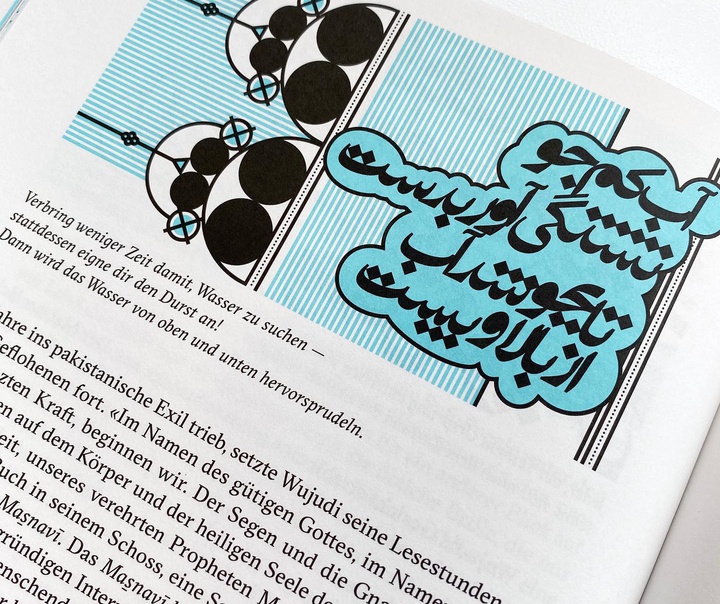 آب کم جو
تشنگی آور بدست
تا بجوشد آب
از بالا و پست
Verbring weniger Zeit damit, Wasser zu suchen —
stattdessen eigne dir den Durst an!
Dann wird das Wasser von oben und unten hervorsprudeln.
ahre ins pakistanische Exil trieb, setzte Wujudi seine Lesestunden
eflohenen fort. «Im Namen des gütigen Gottes, im Namen
zten Kraft, beginnen wir. Der Segen und die Gna
en auf dem Körper und der heiligen Seele de
eit, unseres verehrten Propheten M
Buch in seinem Schoss, eine
Maṣnavī. Das Maṣnavī
gründigen Inter
enschend